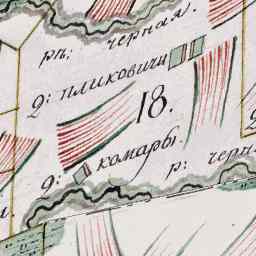 рп: черная.
д: пликовичи
18.
д: комары.
р: черн